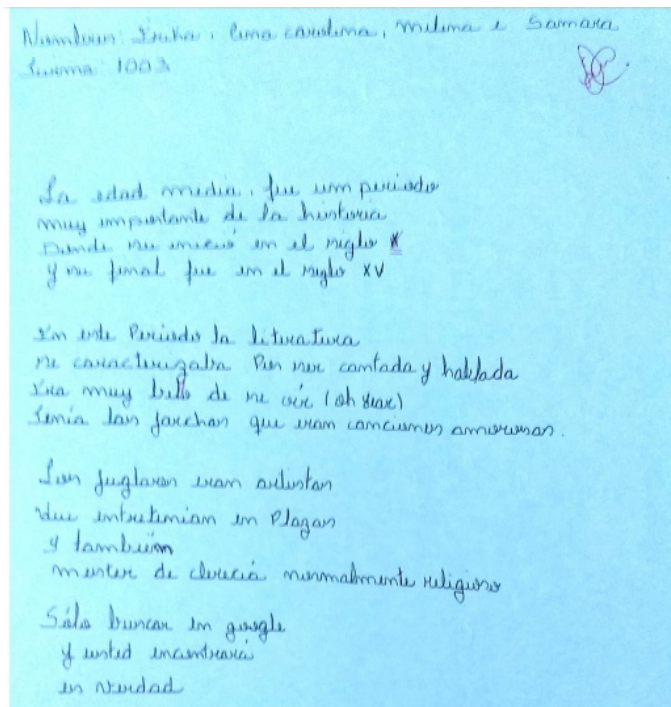 Nombres: Erika, Ana carolina, milena e Samara
Turma: 1003
La edad media, fue um periodo
muy importante de la historia
Donde su inició en el siglo X
y su final fue en el siglo XV
En este Periodo la literatura
se caracterizaba Por ser cantada y hablada
Era muy bello de se oír (oh year)
Tenía las jarchas que eram canciones amorosas.
Los juglares eram artistas
que entreteniam en Plazas
y también
mester de clerecía normalmente religioso
Sólo buscar en google
y usted encontrará
es verdad